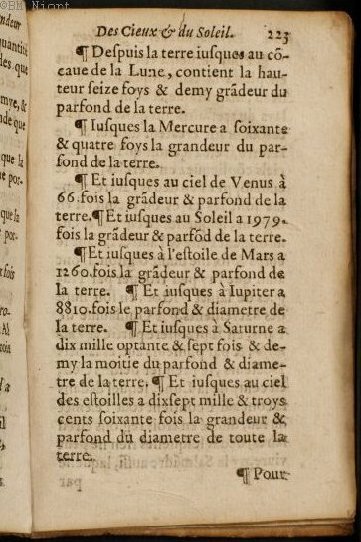 ©BM Niort
Des Cieux & du Soleil. 223
¶ Despuis la terre iusques au cō-
caue de la Lune, contient la hau-
teur seize foys & demy grādeur du
parfond de la terre.
¶ Iusques la Mercure a soixante
& quatre foys la grandeur du par-
fond de la terre.
¶ Et iusques au ciel de Venus à
66. fois la grādeur & parfond de la
terre. ¶ Et iusques au Soleil a 1979.
fois la grādeur & parfōd de la terre.
¶ Et iusques à l'estoile de Mars a
1260. fois la grādeur & parfond de
la terre. ¶ Et iusques à Iupiter a
8810. fois le parfond & diametre de
la terre. ¶ Et iusques à Saturne a
dix mille optante & sept fois & de-
my la moitie du parfond & diame-
tre de la terre. ¶ Et iusques au ciel
des estoilles a dixsept mille & troys
cents soixante fois la grandeur &
parfond du diametre de toute la
terre.
¶ Pour